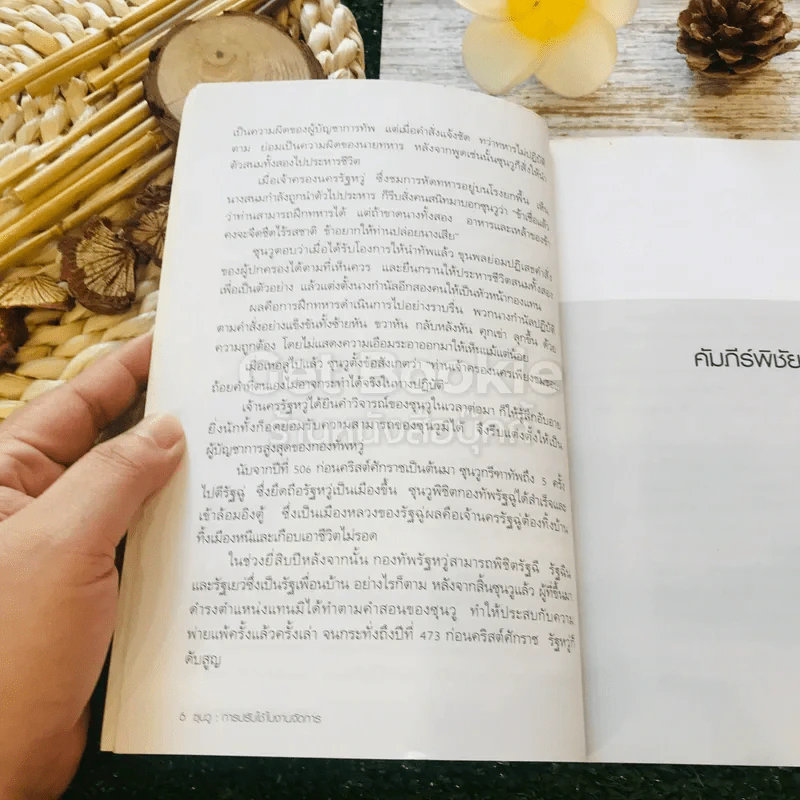 เป็นความผิดของผู้บัญชาการทัพ แต่เมื่อคำสั่งแจ้งชัด ทว่าทหารไม่ปฏิบัติ
ตาม ย่อมเป็นความผิดของนายทหาร หลังจากพูดเช่นนั้นซุนวูก็สั่งให้นำ
ตัวสนมทั้งสองไปประหารชีวิต
เมื่อเจ้าครองนครรัฐหวู่ ซึ่งชมการหัดทหารอยู่บนโรงยกพื้น เห็น
นางสนมกำลังถูกนำตัวไปประหาร ก็รีบสั่งคนสนิทมาบอกซุนวูว่า "ข้าเชื่อแล้ว
ว่าท่านสามารถฝึกทหารได้ แต่ถ้าขาดนางทั้งสอง อาหารและเหล้าของข้า
คงจะจืดชืดไร้รสชาติ ข้าอยากให้ท่านปล่อยนางเสีย"
ซุนวูตอบว่าเมื่อได้รับโองการให้นำทัพแล้ว ขุนพลย่อมปฏิเสธคำสั่ง
ของผู้ปกครองได้ตามที่เห็นควร และยืนกรานให้ประหารชีวิตสนมทั้งสอง
เพื่อเป็นตัวอย่าง แล้วแต่งตั้งนางกำนัลอีกสองคนให้เป็นหัวหน้ากองแทน
ผลคือการฝึกทหารดำเนินการไปอย่างราบรื่น พวกนางกำนัลปฏิบัติ
ตามคำสั่งอย่างแข็งขันทั้งซ้ายหัน ขวาหัน กลับหลังหัน คุกเข่า ลุกขึ้น ด้วย
ความถูกต้อง โดยไม่แสดงความเอือมระอาออกมาให้เห็นแม้แต่น้อย
เมื่อเหอลู่ไปแล้ว ซุนวูตั้งข้อสังเกตว่า "ท่านเจ้าครองนครเพียงชมชอบ
ถ้อยคำที่ตนเองไม่อาจกระทำได้จริงในทางปฏิบัติ"
เจ้านครรัฐหวู่ได้ยินคำวิจารณ์ของซุนวูในเวลาต่อมา ก็ให้รู้สึกอับอาย
ยิ่งนักทั้งก็อดยอมรับความสามารถของซุนวูมิได้ จึงรีบแต่งตั้งให้เป็น
ผู้บัญชาการสูงสุดของกองทัพหวู่
นับจากปีที่ 506 ก่อนคริสต์ศักราชเป็นต้นมา ซุนวูกรีฑาทัพถึง 5 ครั้ง
ไปตีรัฐฉู่ ซึ่งยึดถือรัฐหวู่เป็นเมืองขึ้น ซุนวูพิชิตกองทัพรัฐฉู่ได้สำเร็จและ
เข้าล้อมอิงตู้ ซึ่งเป็นเมืองหลวงของรัฐฉู่ผลคือเจ้านครรัฐฉู่ต้องทิ้งบ้าน
ทิ้งเมืองหนีและเกือบเอาชีวิตไม่รอด
ในช่วงยี่สิบปีหลังจากนั้น กองทัพรัฐหวู่สามารถพิชิตรัฐฉี รัฐฉิน
และรัฐเยว่ซึ่งเป็นรัฐเพื่อนบ้าน อย่างไรก็ตาม หลังจากสิ้นซุนวูแล้ว ผู้ที่ขึ้นมา
ดำรงตำแหน่งแทนมิได้ทำตามคำสอนของซุนวู ทำให้ประสบกับความ
พ่ายแพ้ครั้งแล้วครั้งเล่า จนกระทั่งถึงปีที่ 473 ก่อนคริสต์ศักราช รัฐหวู่ก็
ดับสูญ
6 ซุนวู : การปรับใช้ในงานจัดการ
คัมภีร์พิชัย
ร้านหนังสือบุ๊คกี้